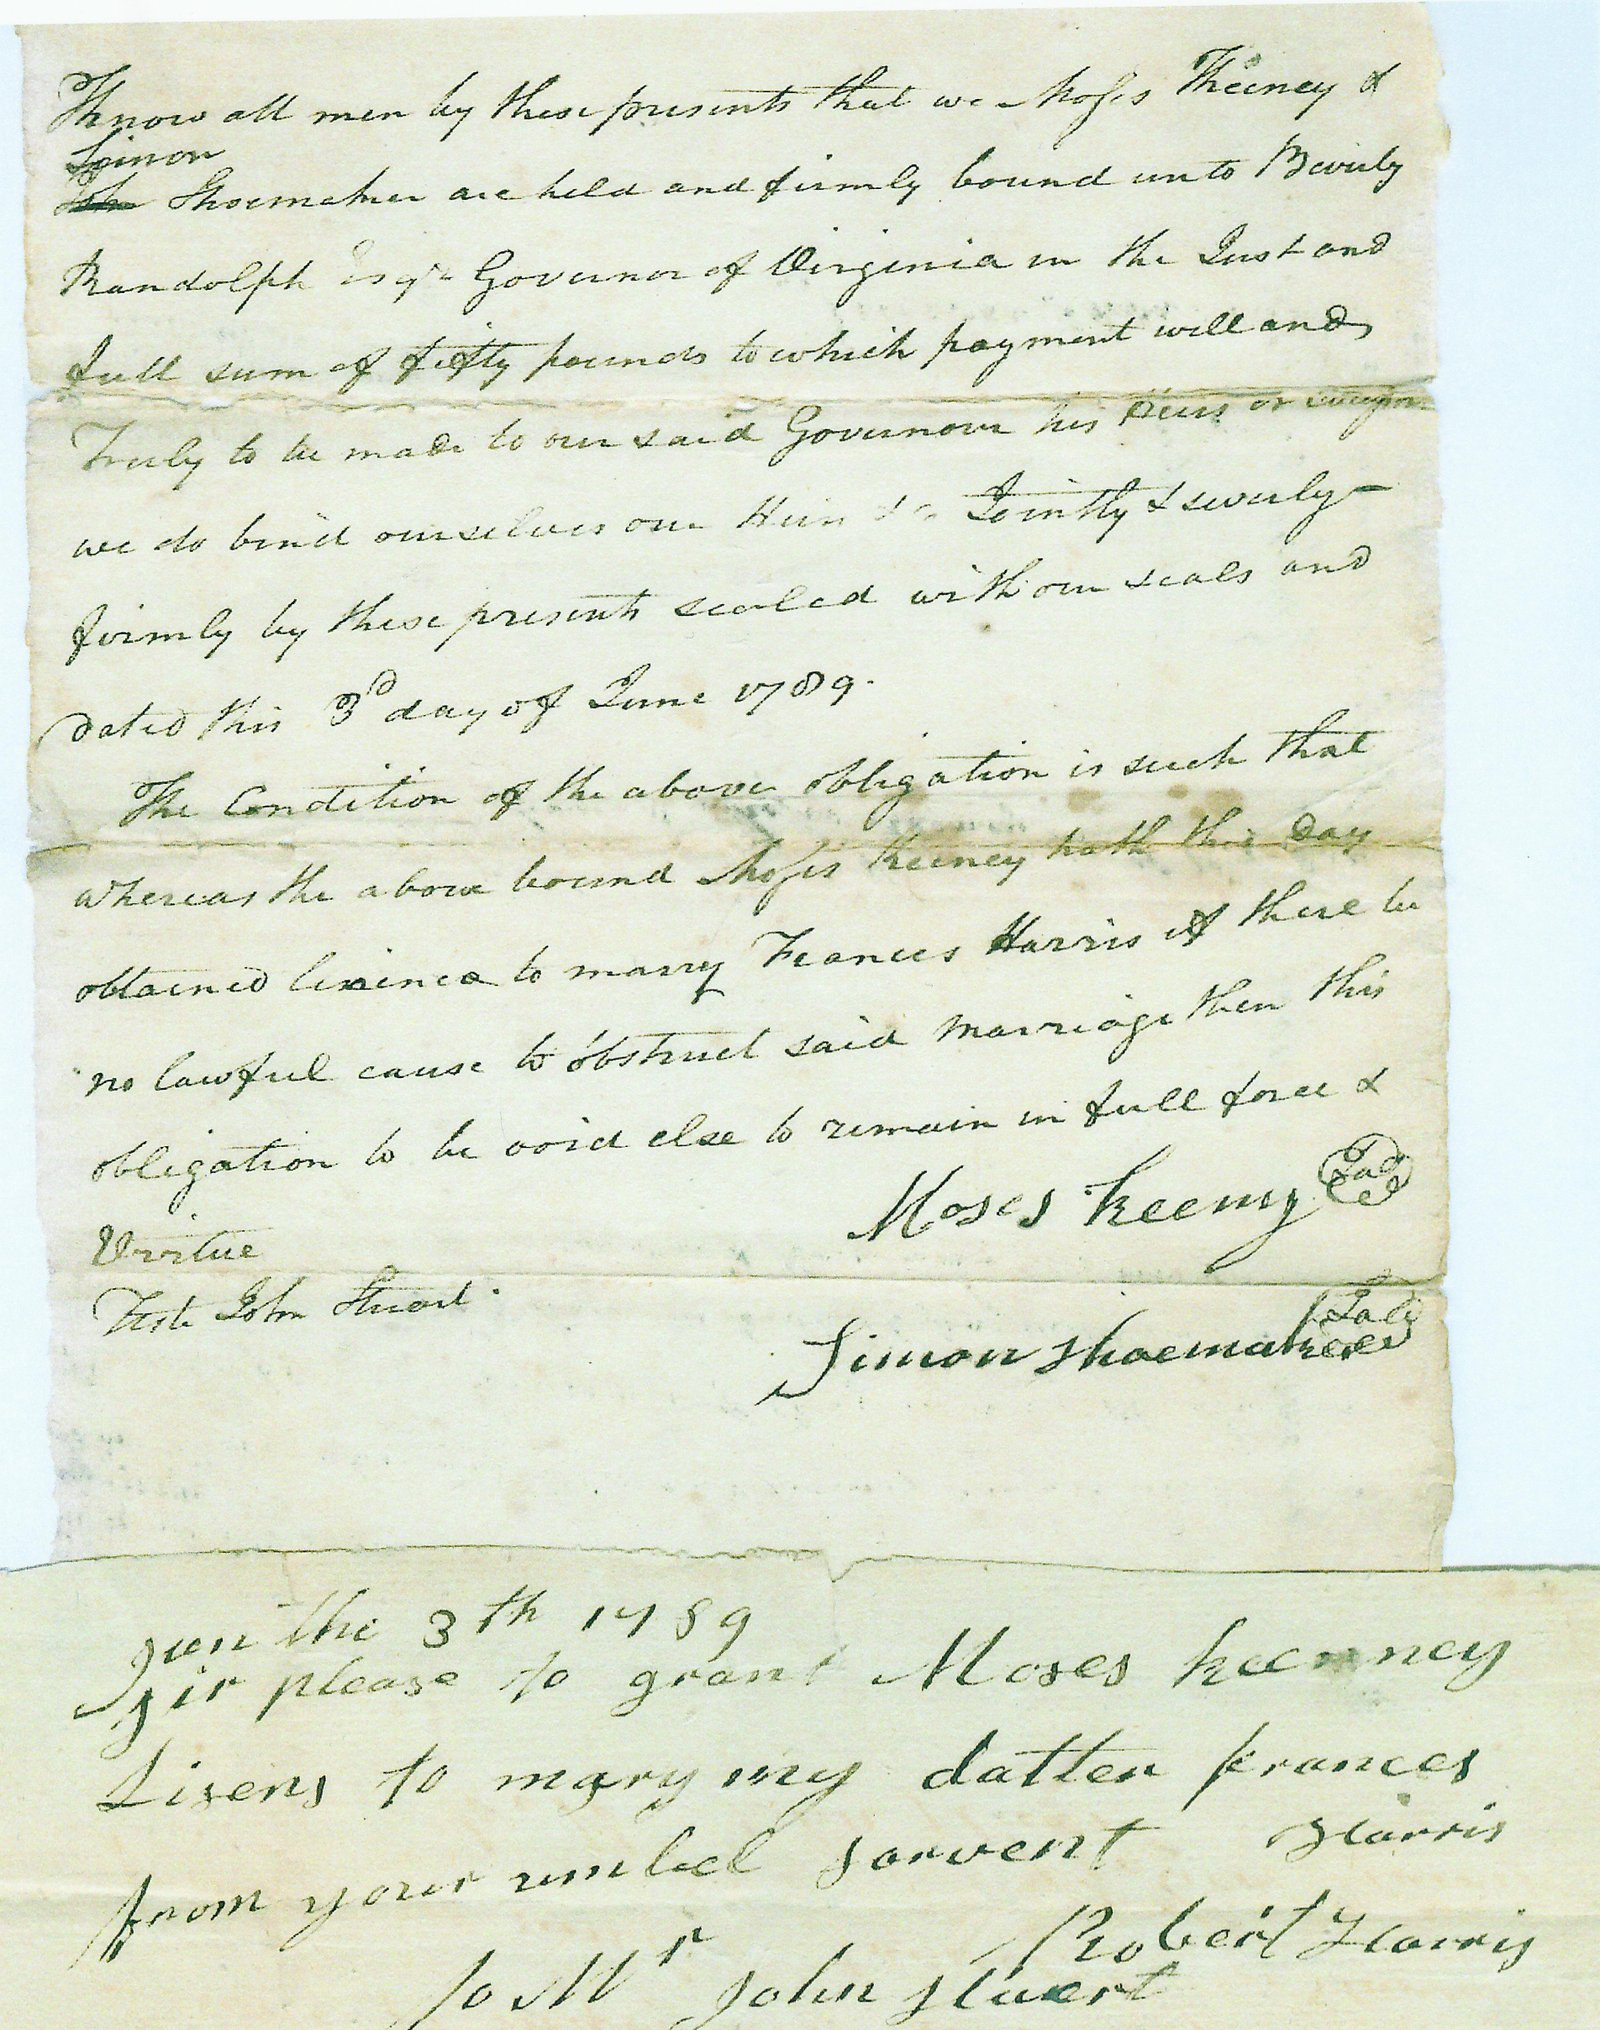 Know all men by these presents that we Moses Keeney &
Simon
John Shoemaker are held and firmly bound unto Beverly
Randolph Esqr Governor of Virginia in the Just and
full sum of fifty pounds to which payment will and
Truly to be made to our said Governour his heirs or
we do bind ourselves our Heirs &c Jointly & severly
firmly by these presents sealed with our seals and
dated this 3d day of June 1789.
The Condition of the above obligation is such that
whereas the above bound Moses Keeney hath this day
obtained to marry Frances Harris if there be
no lawful cause to obstruct said marriage then this
obligation to be void else to remain in full force &
Virtue
Moses Keeny Seal
Teste John Stuart.
Simon Shoemaker Seal
Jun the 3th 1789
Sir please to grant Moses Keenney
Lisens to mary my datter frances
Harris
from your umbel sarvent
Robert Harris
to Mr John Stuert